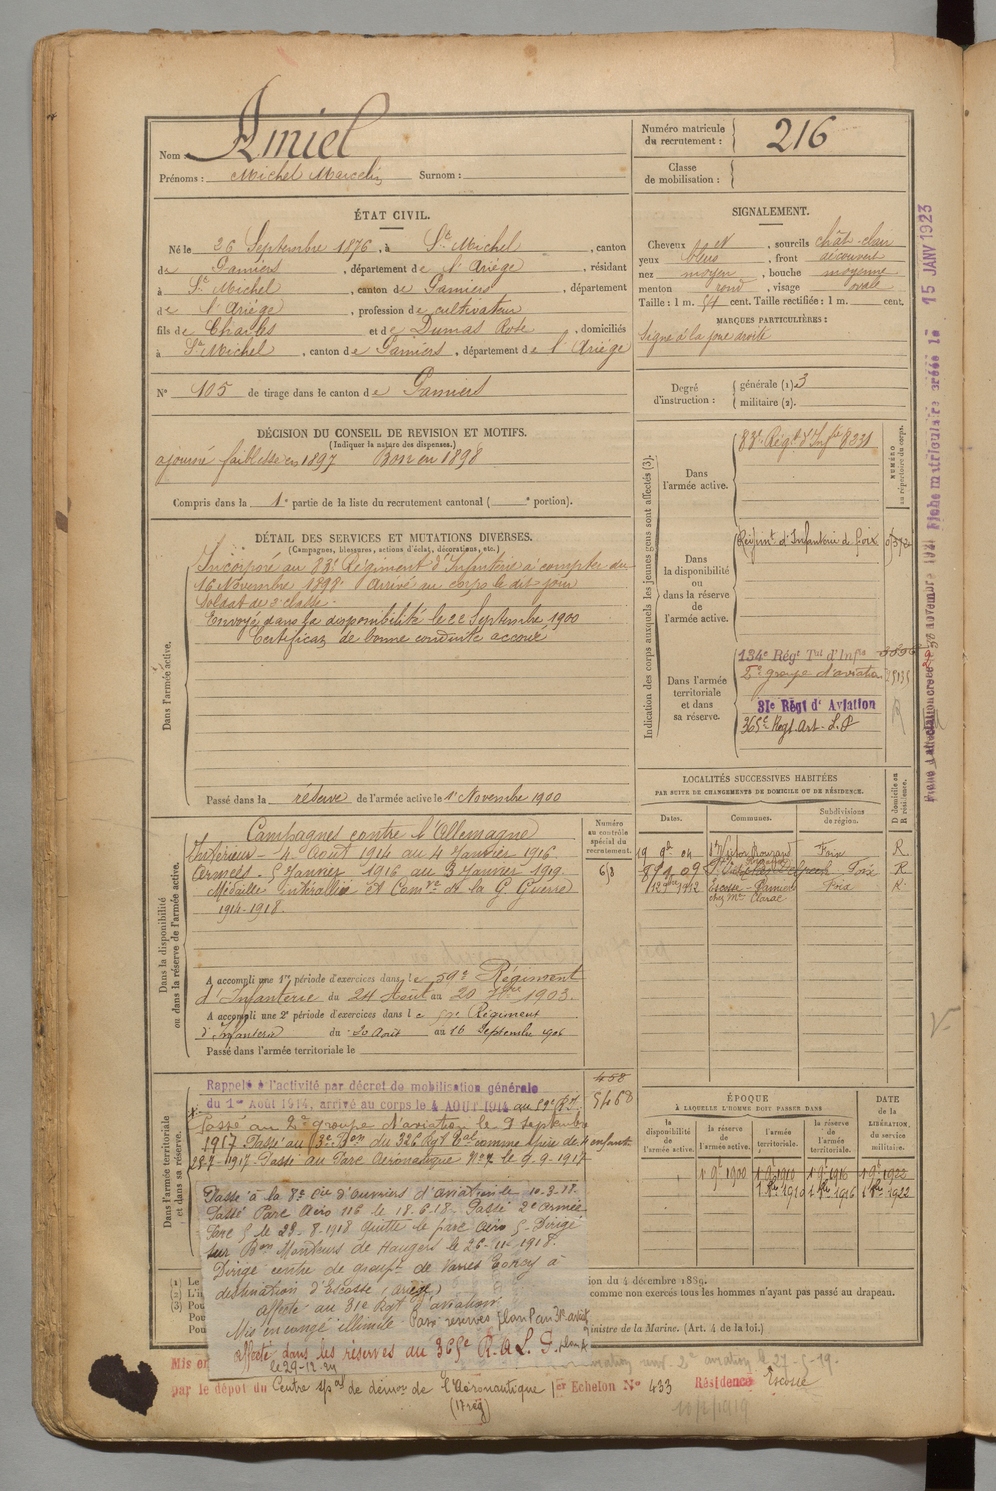 Nom : Amiel
Prénoms : Michel Marcelin Surnom :
Numéro matricule du recrutement : 216
Classe de mobilisation :
ÉTAT CIVIL.
Né le 26 Septembre 1876, à St Michel, canton
de Pamiers, département de l'Ariège, résidant
à St Michel, canton de Pamiers, département
de l'Ariège, profession de cultivateur
fils de Charles et de Dumas Rose, domiciliés
à St Michel, canton de Pamiers, département de l'Ariége
No 105 de tirage dans le canton de Pamiers
SIGNALEMENT.
Cheveux et, sourcils chât-clair
yeux bleus, front découvert
nez moyen, bouche moyenne
menton rond, visage ovale
Taille : 1 m. 54 cent. Taille rectifiée : 1 m. cent.
MARQUES PARTICULIÈRES :
signe à la joue droite
Degré d'instruction : générale (1) 3
militaire (2).
DÉCISION DU CONSEIL DE REVISION ET MOTIFS.
(Indiquer la nature des dispenses.)
ajourné faiblesse en 1897 Bon en 1898
Compris dans la 1e partie de la liste du recrutement cantonal ( e portion).
DÉTAIL DES SERVICES ET MUTATIONS DIVERSES.
(Campagnes, blessures, actions d'éclat, décorations, etc.)
Dans l'armée active.
Incorporé au 83e Régiment d'Infanterie à compter du
16 Novembre 1898 Arrivé au corps le dit jour
Soldat de 2e classe.
Envoyé dans la disponibilité le 22 Septembre 1900
Certificat de bonne conduite accordé
Passé dans la réserve de l'armée active le 1er Novembre 1900
Indication des corps auxquels les jeunes gens sont affectés (3).
NUMÉRO au répertoire du corps.
Dans l'armée active.
83e Régt d'Infie 8331
Dans la disponibilité ou dans la réserve de l'armée active.
Régimt d'Infanterie de Foix
Dans l'armée territoriale et dans sa réserve.
134e Régt Tal d'Infie
2e groupe d'aviation
31e Régt d'Aviation
365e Regt Art. L. P
Dans la disponibilité ou dans la réserve de l'armée active.
Campagnes contre l'Allemagne
Intérieur - 4 Août 1914 au 4 Janvier 1916
Armées - 5 Janvier 1916 au 3 Janvier 1919
Médaille interalliée et Comve de la G Guerre
1914-1918.
A accompli une 1re période d'exercices dans le 59e Régiment
d'Infanterie du 24 Août au 20 7bre 1903.
A accompli une 2e période d'exercices dans le Régiment
d'Infanterie du 20 Août au 16 Septembre 1906
Passé dans l'armée territoriale le
Numéro au contrôle spécial du recrutement.
658
LOCALITÉS SUCCESSIVES HABITÉES
PAR SUITE DE CHANGEMENTS DE DOMICILE OU DE RÉSIDENCE.
Dates. Communes. Subdivisions de région. D domicile ou R résidence.
19 9bre 04 St Victor Rouzaud Foix R
Foix R
Escosse - Pamiers Foix R
chez Mr Clarac
Dans l'armée territoriale et dans sa réserve.
458
5468
Rappelé à l'activité par décret de mobilisation générale
du 1er Août 1914, arrivé au corps le 4 AOUT 1914 au 59e Rt.
Passé au 2e groupe d'aviation le 9 septembre
1917 Passé au 13e Bon du 326 Rgt Tal comme père de 4 enfants
28-7-1917 Passé au Parc Aéronautique No 7 le 9-9-1917
Passé à la 8e Cie d'ouvriers d'aviation le 10-3-18.
Passé Parc Aéro 116 le 18-6-18. Passé 2e armée
Parc 5 le 28-8-1918 quitte le parc aéro 5. Dirigé
sur Bon Monteurs de Hangars le 26-11-1918.
Dirigé centre de groupt de
destination d'Escosse (Ariège)
affecté au 31e Rgt d'aviation
Mis en congé illimité
affecté dans les réserves au 365e R.A.L.
le 29-12-24
ÉPOQUE
À LAQUELLE L'HOMME DOIT PASSER DANS
la disponibilité de l'armée active. la réserve de l'armée active. l'armée territoriale. la réserve de l'armée territoriale.
DATE de la LIBÉRATION, du service militaire.
1 9bre 1900 1 9bre 1910 1 9bre 1916 1 9bre 1922
1910 1916 1922
(1) Le
(2) L'i
(3) Pou
Pou
Pou
ion du 4 décembre 1889.
comme non exercés tous les hommes n'ayant pas passé au drapeau.
inistre de la Marine. (Art. 4 de la loi.)
Mis en
par le dépôt du Centre spal de démon de l'Aéronautique 1er Echelon No 433 Résidence Escosse
Fiche matriculaire créée le 15 JANV 1923